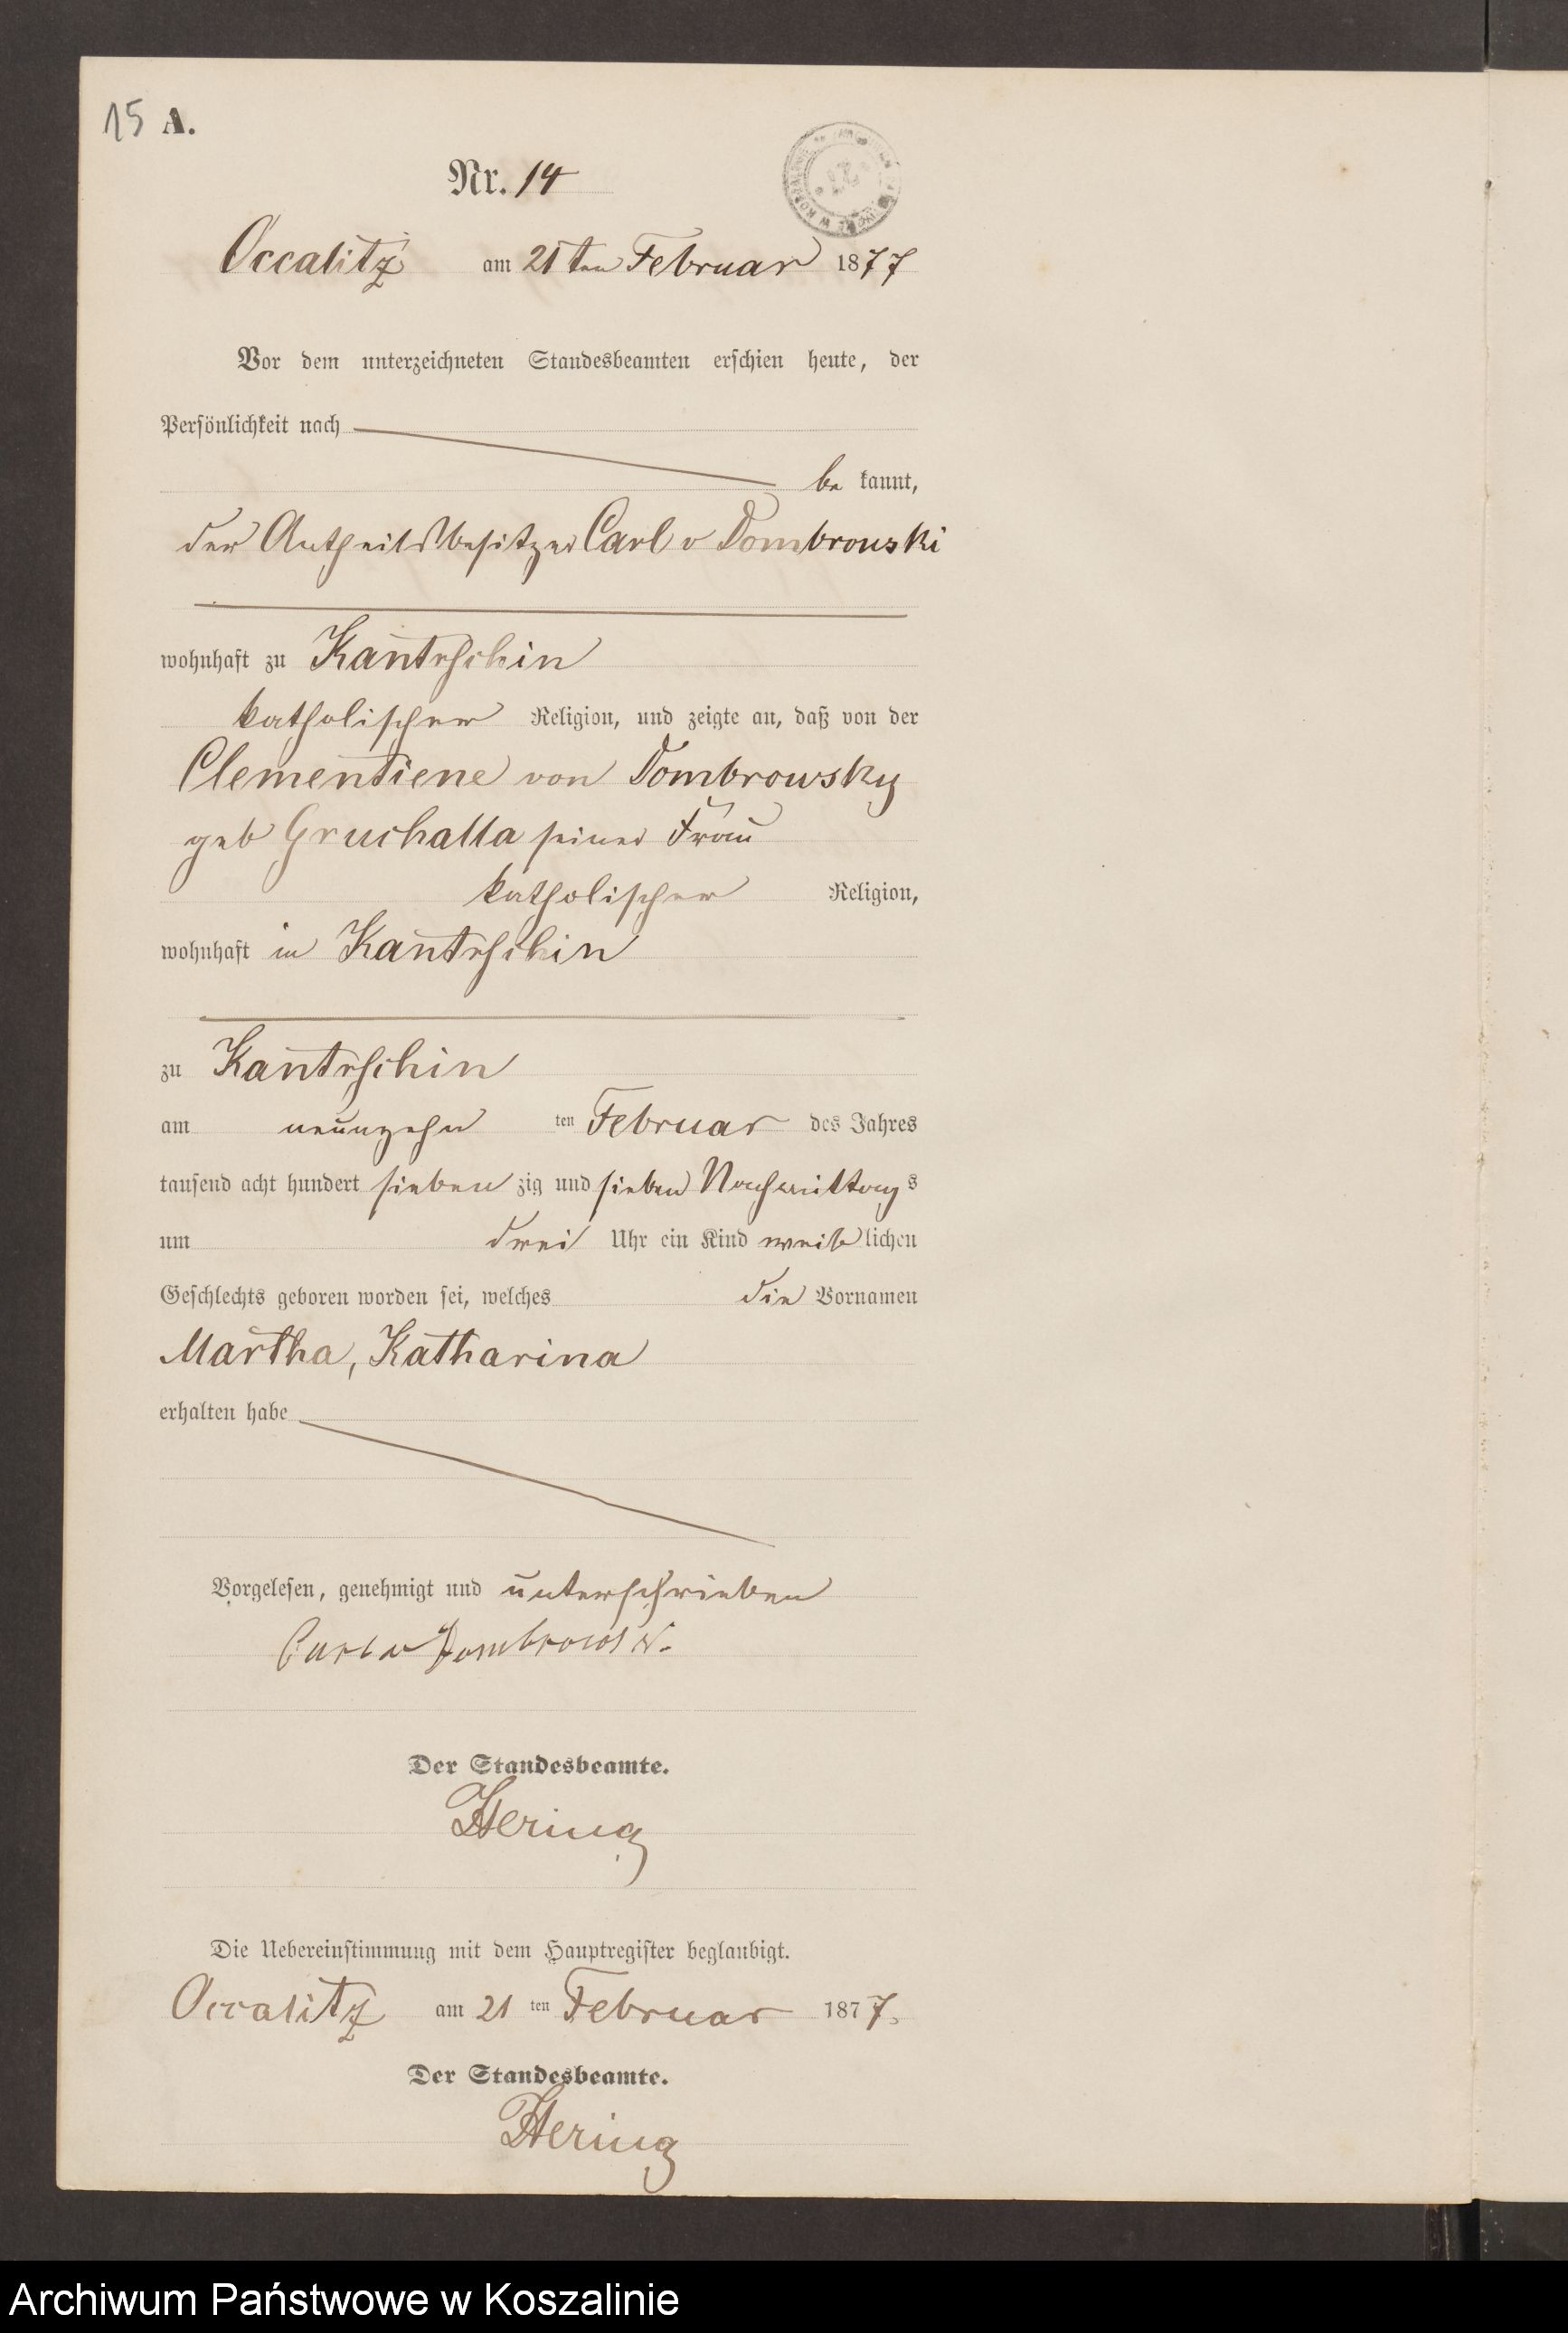 15 A.
Nr. 14
Occalitz am 21ten Februar 1877
Vor dem unterzeichneten Standesbeamten erschien heute, der
Persönlichkeit nach
be kannt,
der Antheilsbesitzer Carl v Dombrouski
wohnhaft zu Kantrschin
katholischer Religion, und zeigte an, daß von der
Clementiene von Dombrowsky
geb Gruchalla seiner Frau
katholischer Religion,
wohnhaft in Kantrschin
zu Kantrschin
am neunzehn ten Februar des Jahres
tausend acht hundert sieben zig und sieben Nachmittags
um drei Uhr ein Kind weiblichen
Geschlechts geboren worden sei, welches die Vornamen
Martha, Katharina
erhalten habe
Vorgelesen, genehmigt und unterschrieben
Carl v Dombrowsk
Der Standesbeamte.
Hering
Die Uebereinstimmung mit dem Hauptregister beglaubigt.
Occalitz am 21 ten Februar 1877.
Der Standesbeamte.
Hering
Archiwum Państwowe w Koszalinie